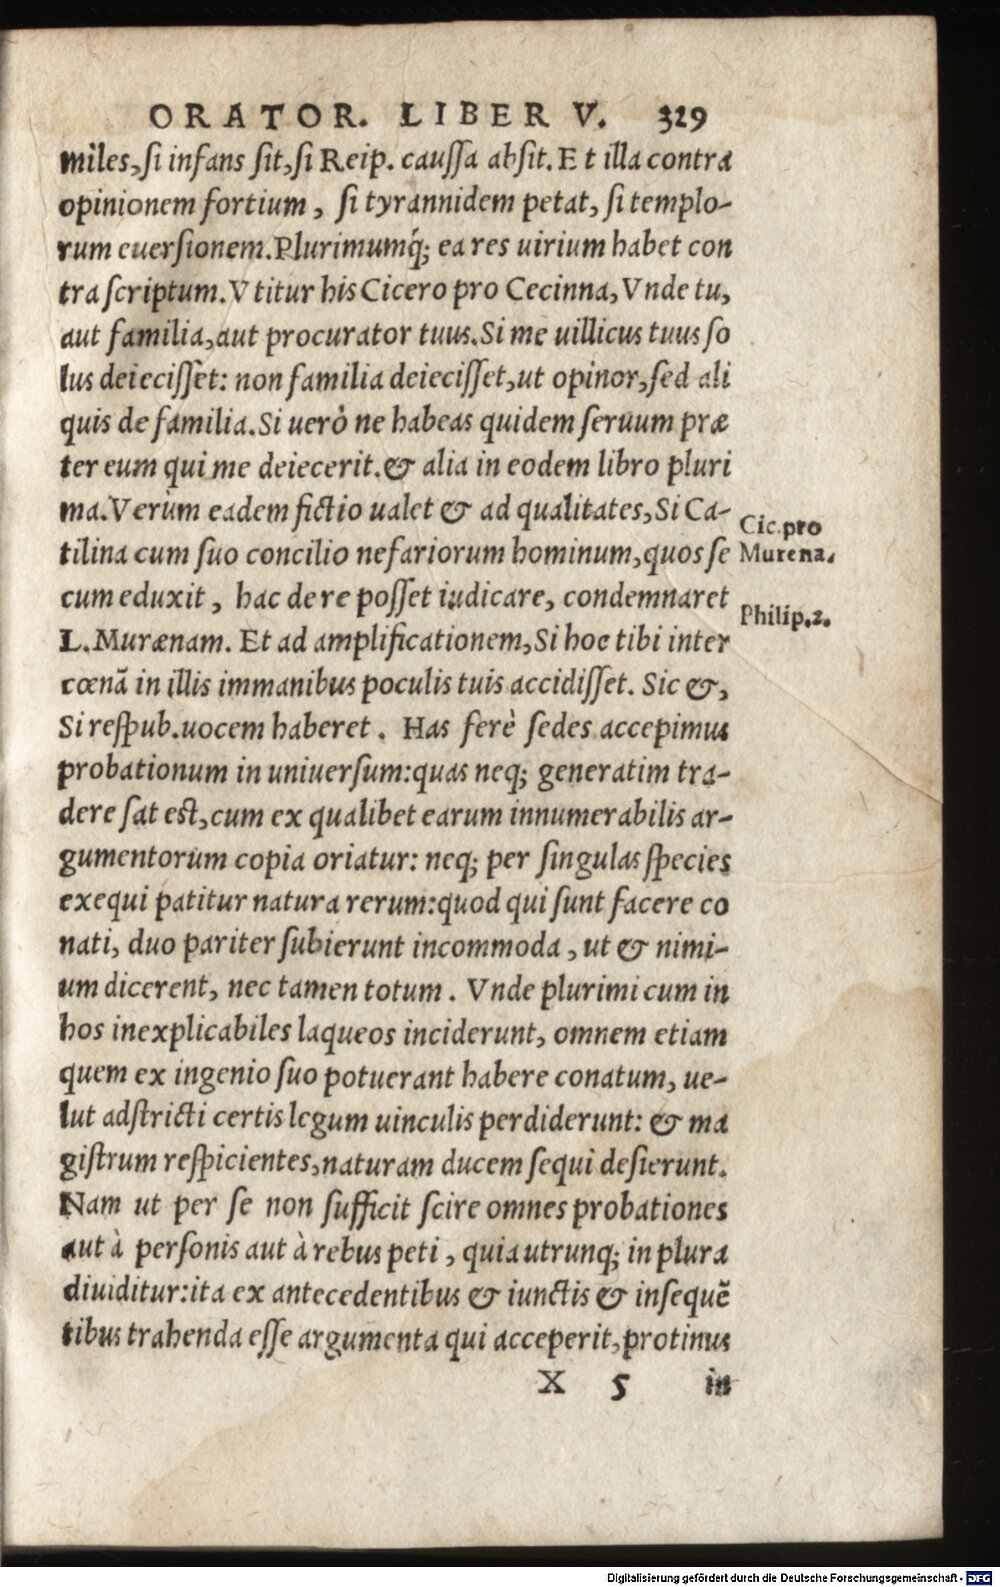 ORATOR. LIBER V. 329
miles, si infans sit, si Reip. caussa absit. Et illa contra
opinionem fortium, si tyrannidem petat, si templo-
rum euersionem. Plurimumq́; ea res uirium habet con
tra scriptum. Vtitur his Cicero pro Cecinna, Vnde tu,
aut familia, aut procurator tuus. Si me uillicus tuus so
lus deiecisset: non familia deiecisset, ut opinor, sed ali
quis de familia. Si uerò ne habeas quidem seruum præ
ter eum qui me deiecerit. & alia in eodem libro pluri
ma. Verùm eadem fictio ualet & ad qualitates, Si Ca-
tilina cum suo concilio nefariorum hominum, quos se
cum eduxit, hac de re posset iudicare, condemnaret
L. Murænam. Et ad amplificationem, Si hoc tibi inter
cœnā in illis immanibus poculis tuis accidisset. Sic &,
Si respub. uocem haberet. Has ferè sedes accepimus
probationum in uniuersum: quas neq; generatim tra-
dere sat est, cum ex qualibet earum innumerabilis ar-
gumentorum copia oriatur: neq; per singulas species
exequi patitur natura rerum: quod qui sunt facere co
nati, duo pariter subierunt incommoda, ut & nimi-
um dicerent, nec tamen totum. Vnde plurimi cum in
hos inexplicabiles laqueos inciderunt, omnem etiam
quem ex ingenio suo potuerant habere conatum, ue-
lut adstricti certis legum uinculis perdiderunt: & ma
gistrum respicientes, naturam ducem sequi desierunt.
Nam ut per se non sufficit scire omnes probationes
aut à personis aut à rebus peti, quia utrunq; in plura
diuiditur: ita ex antecedentibus & iunctis & insequē
tibus trahenda esse argumenta qui acceperit, protinus
X 5 in
Cic. pro
Murena.
Philip. 2.
Digitalisierung gefördert durch die Deutsche Forschungsgemeinschaft - DFG